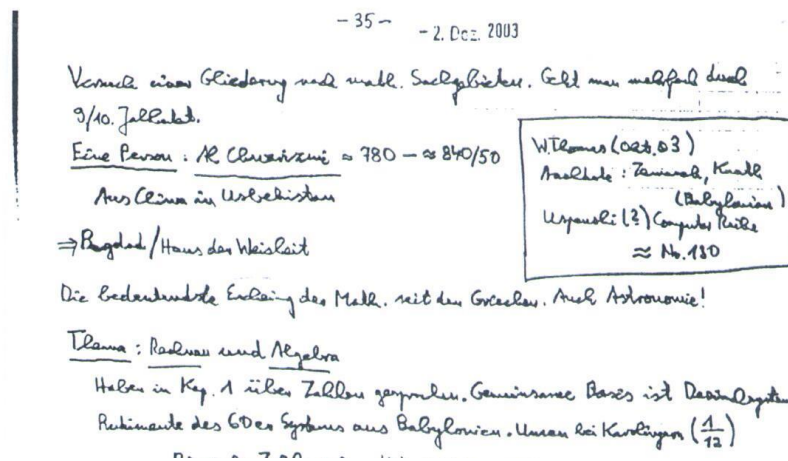 - 35 -
- 2. Dez. 2003
Versuch einer Gliederung nach math. Sachgebieten. Geht man mehrfach durch
9/10. Jahrhdt.
Eine Person : Al Chwarizmi ≈ 780 – ≈ 840/50
Aus Chiwa in Usbekistan
⇒ Bagdad / Haus der Weisheit
W. Thomas (Okt. 03)
: Zemanek, Knuth
(Babylonian)
Uspenski (?) Computer Reihe
≈ No. 180
Die bedeutendste der Math. seit den Griechen. Auch Astronomie!
Thema : Rechnen und Algebra
Haben in Kap. 1 über Zahlen gesprochen. Gemeinsame Basis ist Dezimalsystem
Rudimente des 60er Systems aus Babylonien. Unzen bei Karolingern (1/12)